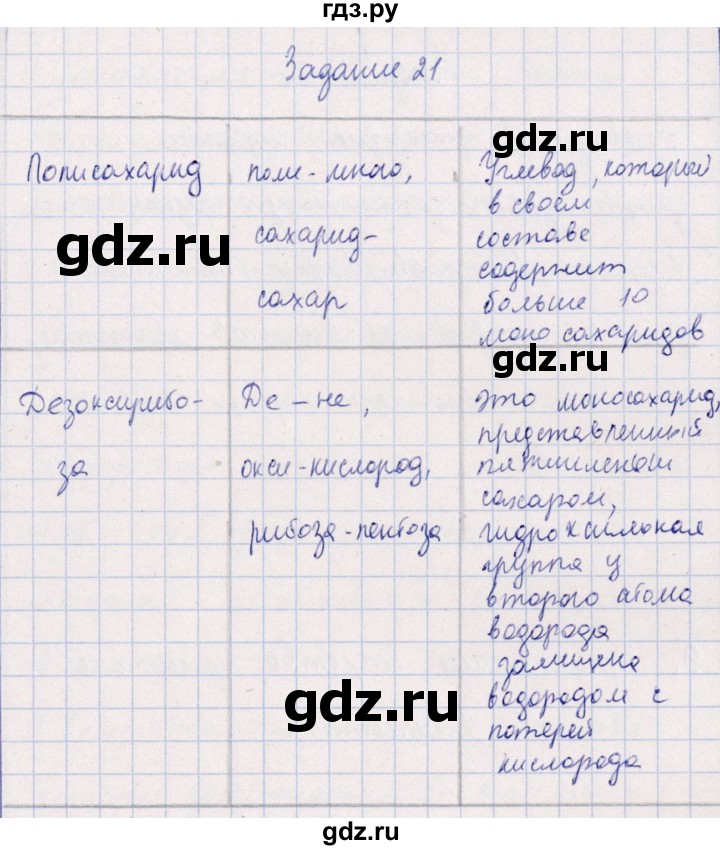 гдз.ру
Задание 21
gdz.ru
Полисахарид
поли-много,
сахарид-
сахар
Углевод, который
в своём
составе
содержит
больше 10
моносахаридов
gdz.ru
gdz.ru
Дезоксирибо-
за
Де-не,
окси-кислород,
рибоза-пентоза
это моносахарид,
представленный
пятичленым
сахаром,
гидроксильная
группа у
второго атома
водорода
замещена
водородом с
потерей
кислорода
gdz.ru
gdz.ru